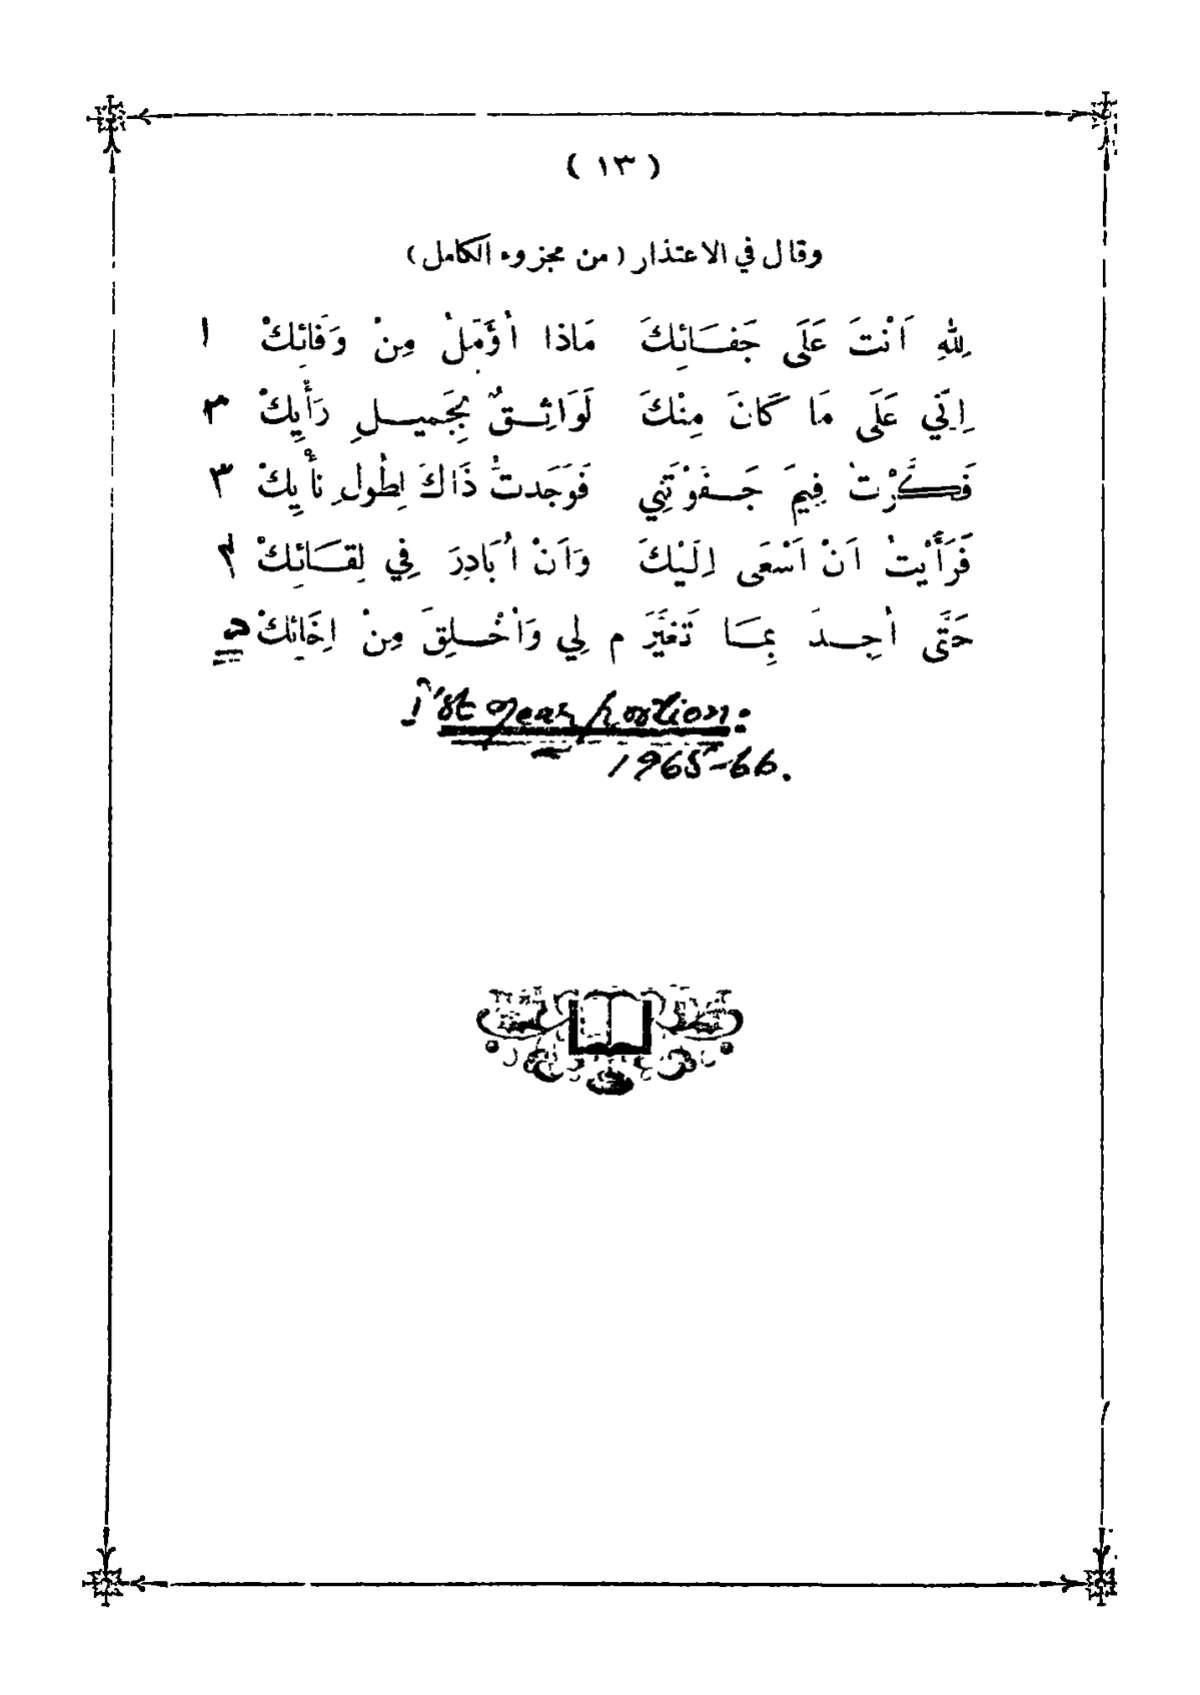 ( ١٣ )
وقال في الاعتذار (من مجزوء الكامل)
لِلّٰهِ اَنْتَ عَلَى جَفَـائِكَ مَاذا أُؤَمِّلُ مِنْ وَفَائِكْ ١
اِنّي عَلَى مَا كَانَ مِنْكَ لَوَاثِـقٌ بِجَمِيـلِ رَأْيِكْ ٢
فَكَّرْتُ فِيمَ جَـفَوْتَنِي فَوَجَدتُّ ذَاكَ لِطُولِ نأْيِكْ ٣
فَرَأَيْتُ اَنْ اَسْعَى اِلَيْكَ وَاَنْ اُبَادِرَ فِي لِقـَائِكْ ٤
حَتَّى اُجِـدَّ بِمَـا تَغَيَّرَ م لِي وَاخْـلِقَ مِنْ اِخَائِكْ ٥
I'st year portion:
1965-66.